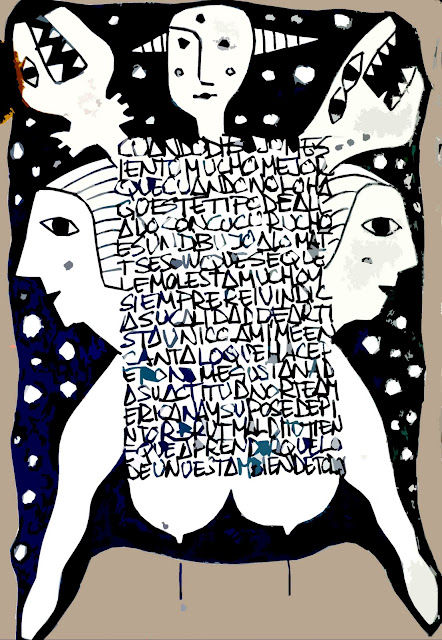 CUANDODIBUJOMES
IENTOMUCHOMEJOR
QUECUANDONOLOHA
GOESTETIPODEALH
ADOCONCUCURUCHO
ESUNDIBUJOALOMAT
TSESAUNQUESEQUE
LEMOLESTAMUCHOY
SIEMPREREIVINDIC
ASUCALIDADDEARTI
STAUNICAAMIMEEN
CANTALOQUEHACEP
ERONOMEGUSTANAD
ASUACTITUDNORTEAM
ERICANAYSUPOSEDEPI
NTORBRUTMALDITOTIEN
EQUEAPRENDERQUELO
DEUNOESTAMBIENDETODOS